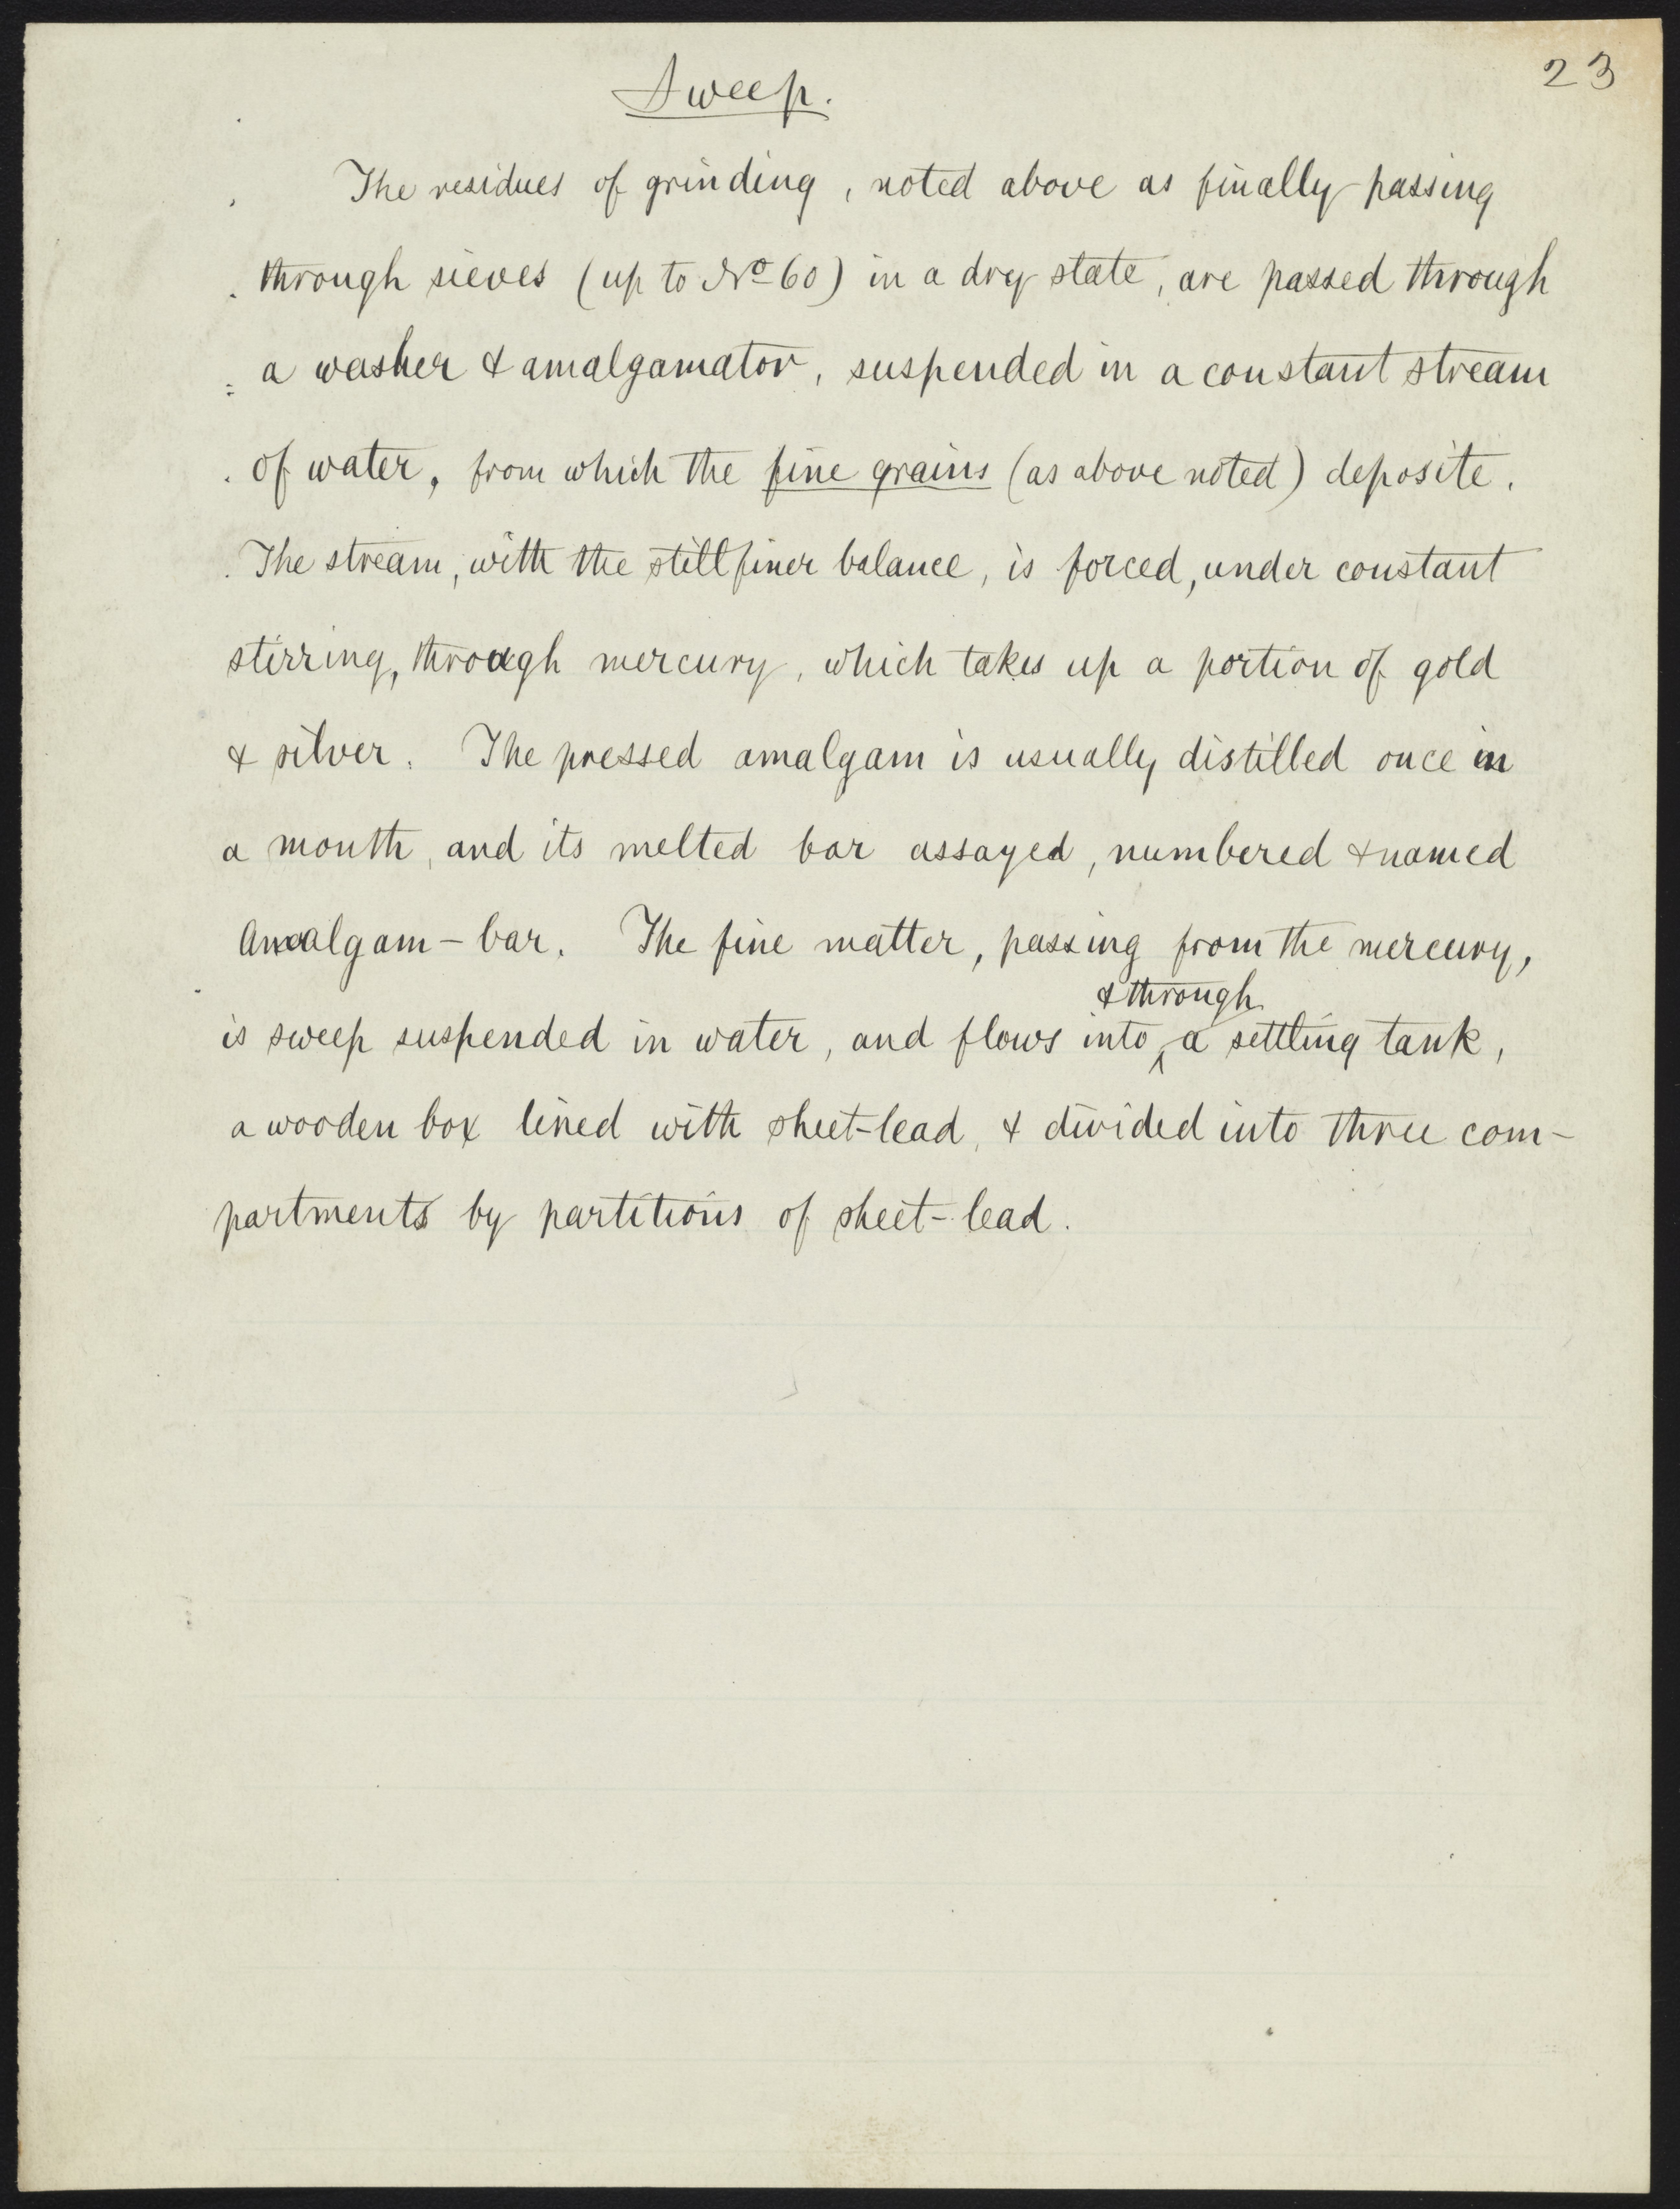 23
Sweep.
The residues of grinding, noted above as finally passing
through sieves (up to No 60) in a dry state, are passed through
a washer & amalgamator, suspended in a constant stream
of water, from which the fine grains (as above noted) deposite.
The stream, with the still finer balance, is forced, under constant
stirring, through mercury, which takes up a portion of gold
& silver. The pressed amalgam is usually distilled once in
a month, and its melted bar assayed, numbered & named
Amalgam-bar. The fine matter, passing from the mercury,
& through
is sweep suspended in water, and flows into ^ a settling tank,
a wooden box lined with sheet-lead, & divided into three com-
partments by partitions of sheet-lead.